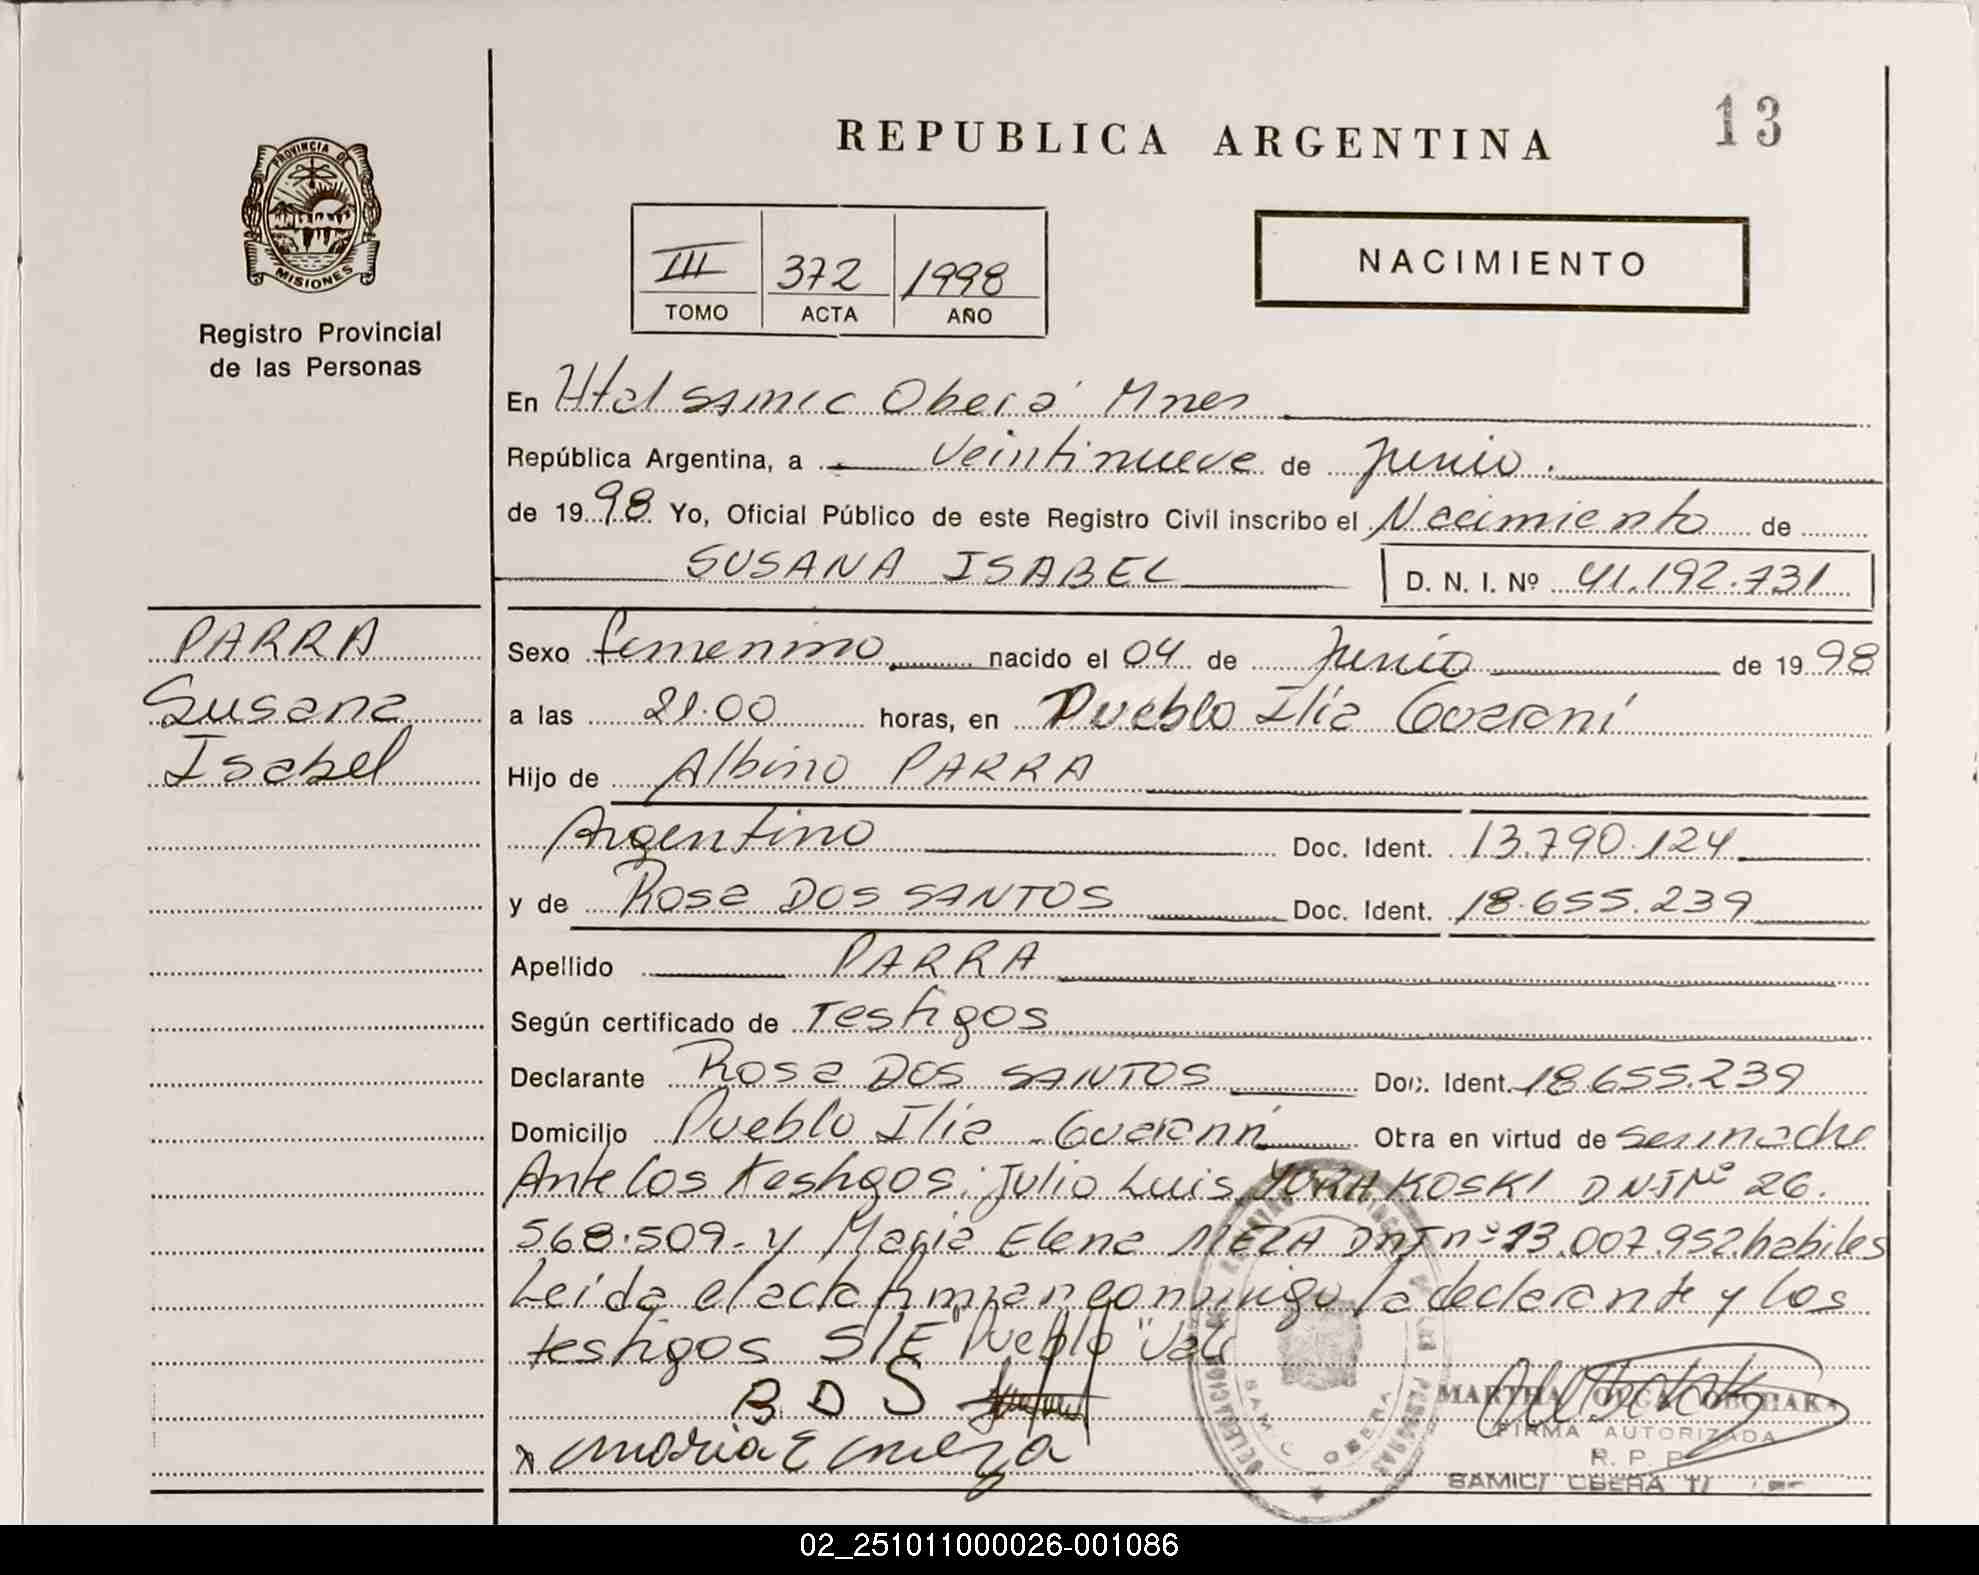 13
REPUBLICA ARGENTINA
PROVINCIA DE
MISIONES
Registro Provincial
de las Personas
III 372 1998
TOMO ACTA AÑO
NACIMIENTO
En Htal SAMIC Oberá Mnes
República Argentina, a veintinueve de Junio.
de 1998 Yo, Oficial Público de este Registro Civil inscribo el Nacimiento de
SUSANA ISABEL D. N. I. Nº 41.192.731
PARRA
Susana
Isabel
Sexo femenino nacido el 04 de Junio de 1998
a las 21.00 horas, en Pueblo Ilia Guaraní
Hijo de Albino PARRA
Argentino Doc. Ident. 13.790.124
y de Rosa DOS SANTOS Doc. Ident. 18.655.239
Apellido PARRA
Según certificado de Testigos
Declarante Rosa DOS SANTOS Doc. Ident. 18.655.239
Domicilio Pueblo Ilia - Guaraní Otra en virtud de ser madre
Ante los testigos: Julio Luis YURAKOSKI DNI Nº 26.
568.509 - y Maria Elena MEZA DNI nº 13.007.952 habiles
Leída el acta firman conmigo la declarante y los
testigos S/E "Pueblo" Vale
R D S
x Maria E Meza
MARTHA OLGA
FIRMA AUTORIZADA
R. P. P.
SAMIC/ OBERA
DELEGACION
SAMIC OBERA
02_251011000026-001086